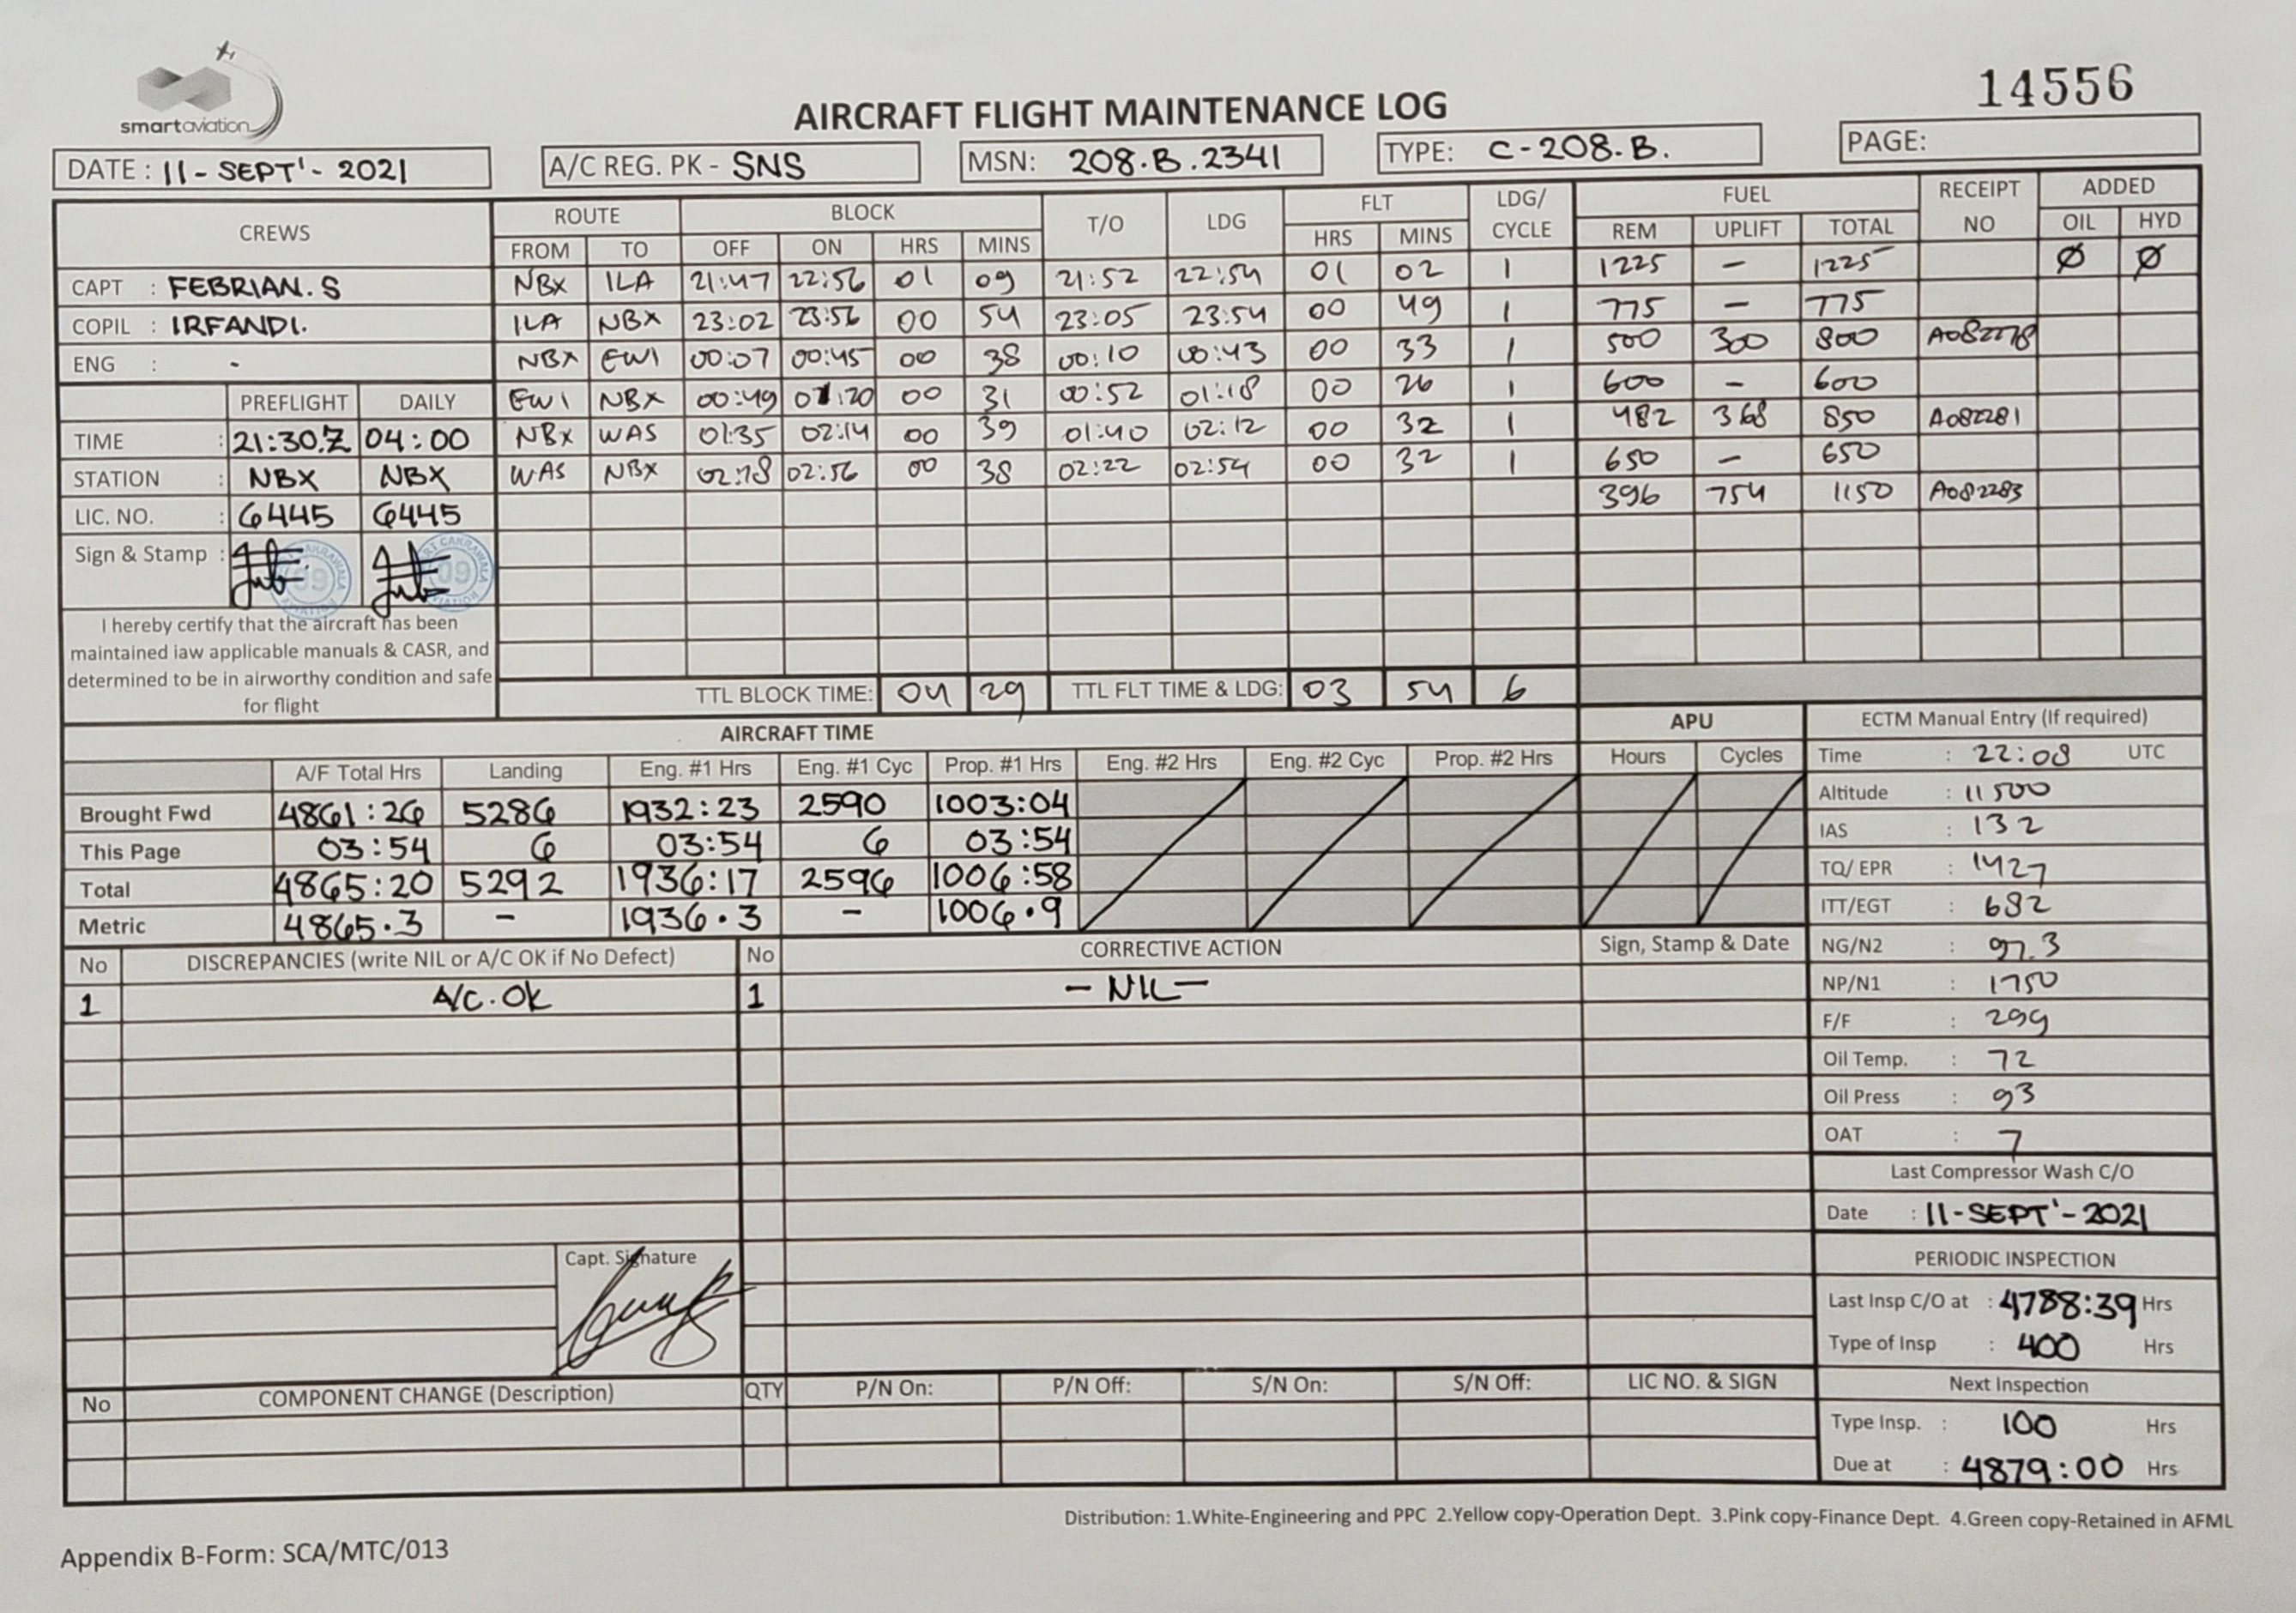 smartaviation
14556
AIRCRAFT FLIGHT MAINTENANCE LOG
DATE : 11-SEPT'-2021 A/C REG. PK - SNS MSN: 208.B.2341 TYPE: C-208.B. PAGE:
CREWS ROUTE BLOCK T/O LDG FLT LDG/CYCLE FUEL RECEIPT NO ADDED
FROM TO OFF ON HRS MINS HRS MINS REM UPLIFT TOTAL OIL HYD
CAPT : FEBRIAN.S NBX ILA 21:47 22:56 01 09 21:52 22:54 01 02 1 1225 - 1225 Ø Ø
COPIL : IRFANDI. ILA NBX 23:02 23:56 00 54 23:05 23:54 00 49 1 775 - 775
ENG : - NBX EWI 00:07 00:45 00 38 00:10 00:43 00 33 1 500 300 800 A082278
PREFLIGHT DAILY EWI NBX 00:49 01:20 00 31 00:52 01:18 00 26 1 600 - 600
TIME : 21:30.Z 04:00 NBX WAS 01:35 02:14 00 39 01:40 02:12 00 32 1 482 368 850 A082281
STATION : NBX NBX WAS NBX 02:18 02:56 00 38 02:22 02:54 00 32 1 650 - 650
LIC. NO. : 6445 6445 396 754 1150 A082283
Sign & Stamp : 09 09
I hereby certify that the aircraft has been
maintained iaw applicable manuals & CASR, and
determined to be in airworthy condition and safe
for flight
TTL BLOCK TIME: 04 29 TTL FLT TIME & LDG: 03 54 6
AIRCRAFT TIME APU ECTM Manual Entry (If required)
A/F Total Hrs Landing Eng. #1 Hrs Eng. #1 Cyc Prop. #1 Hrs Eng. #2 Hrs Eng. #2 Cyc Prop. #2 Hrs Hours Cycles Time : 22:08 UTC
Brought Fwd 4861:26 5286 1932:23 2590 1003:04 Altitude : 11500
This Page 03:54 6 03:54 6 03:54 IAS : 132
Total 4865:20 5292 1936:17 2596 1006:58 TQ/ EPR : 1427
Metric 4865.3 - 1936.3 - 1006.9 ITT/EGT : 682
No DISCREPANCIES (write NIL or A/C OK if No Defect) No CORRECTIVE ACTION Sign, Stamp & Date NG/N2 : 97.3
1 A/C.OK 1 - NIL - NP/N1 : 1750
F/F : 299
Oil Temp. : 72
Oil Press : 93
OAT : 7
Last Compressor Wash C/O
Date : 11-SEPT'-2021
Capt. Signature PERIODIC INSPECTION
Last Insp C/O at : 4788:39 Hrs
Type of Insp : 400 Hrs
No COMPONENT CHANGE (Description) QTY P/N On: P/N Off: S/N On: S/N Off: LIC NO. & SIGN Next Inspection
Type Insp. : 100 Hrs
Due at : 4879:00 Hrs
Distribution: 1.White-Engineering and PPC 2.Yellow copy-Operation Dept. 3.Pink copy-Finance Dept. 4.Green copy-Retained in AFML
Appendix B-Form: SCA/MTC/013